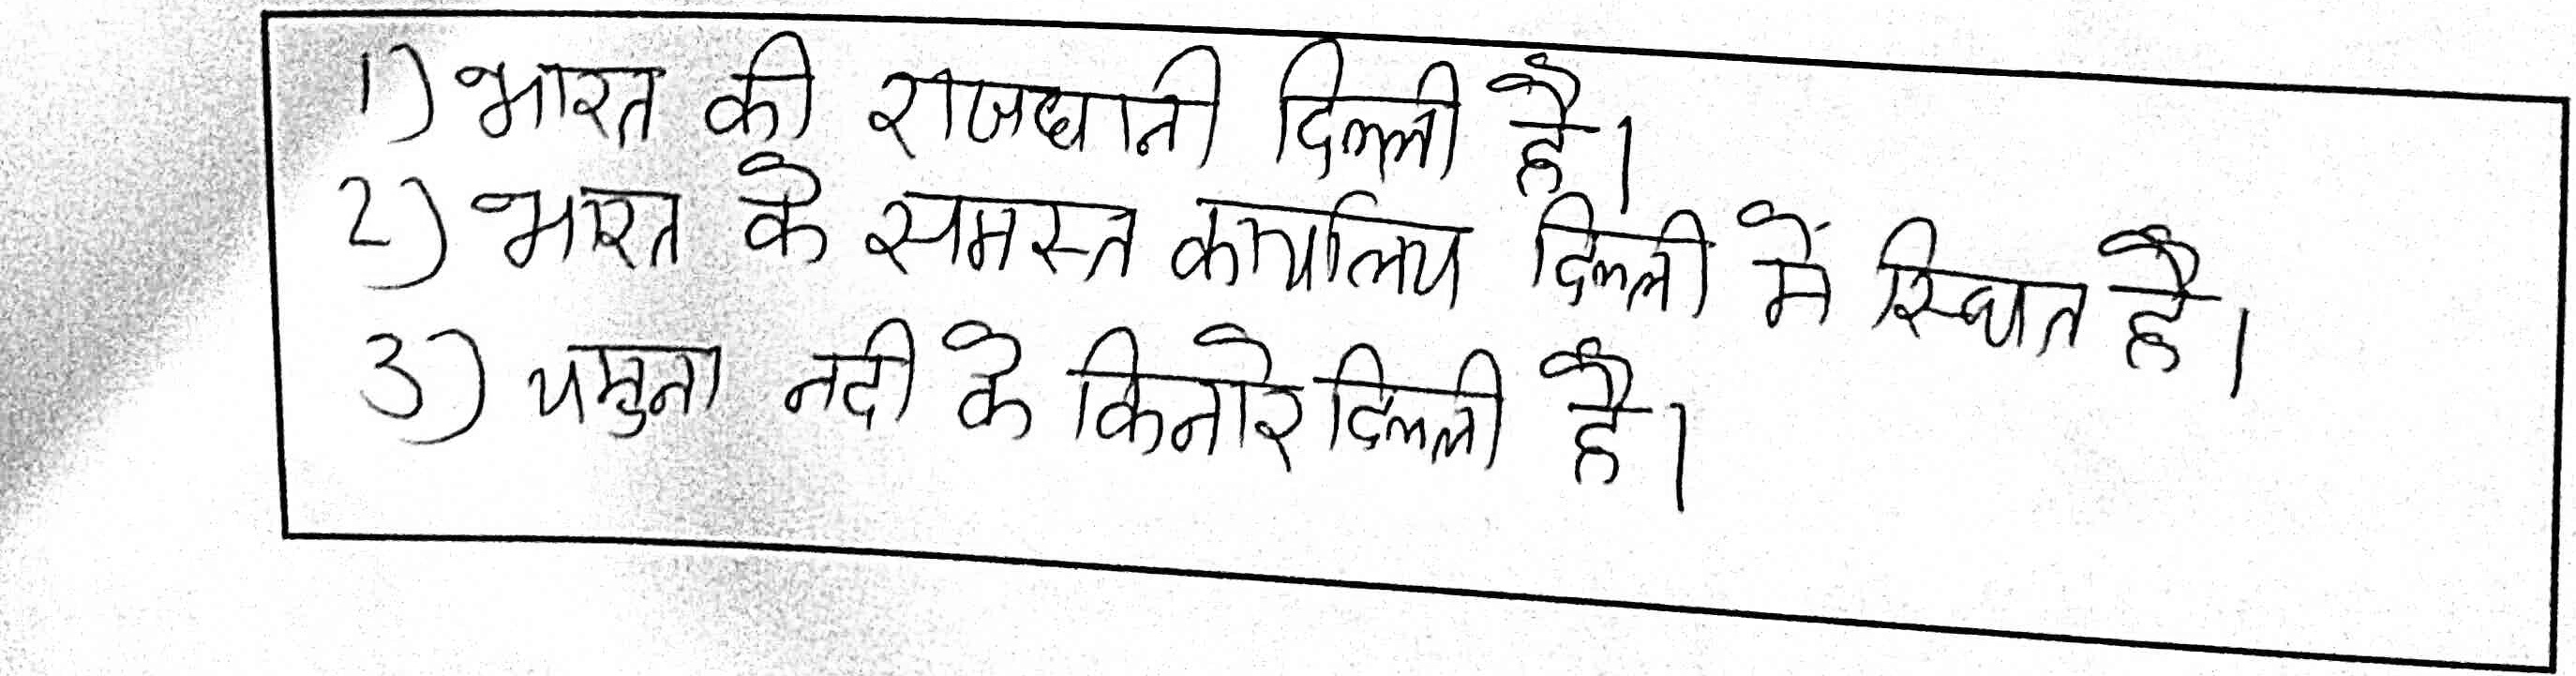 1) भारत की राजधानी दिल्ली है।
2) भारत के समस्त कार्यालय दिल्ली में स्थित है।
3) यमुना नदी के किनारे दिल्ली है।